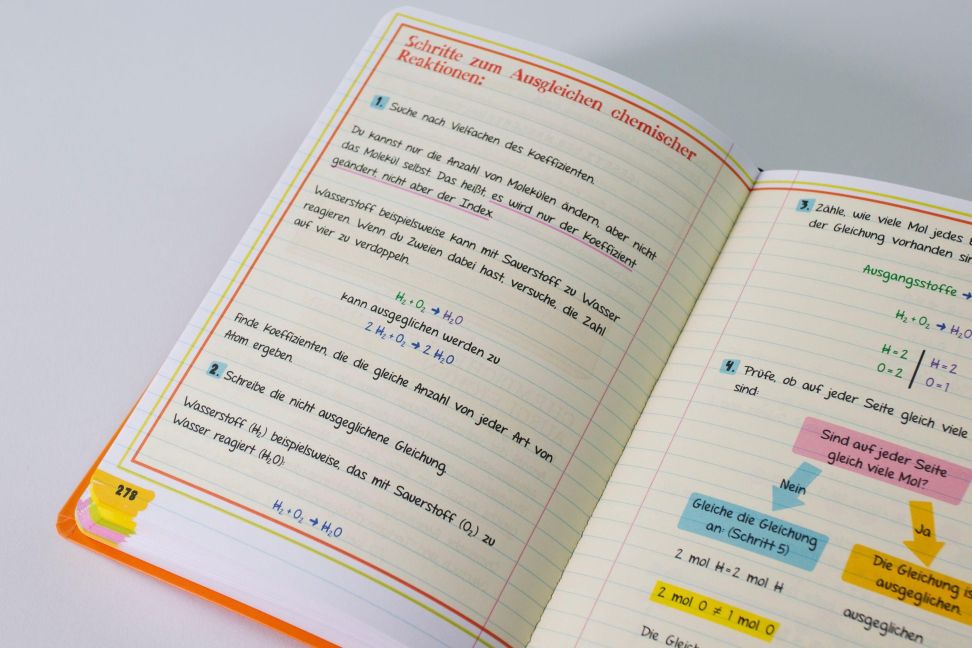 Schritte zum Ausgleichen chemischer
Reaktionen:
1. Suche nach Vielfachen des Koeffizienten.
Du kannst nur die Anzahl von Molekülen ändern, aber nicht
das Molekül selbst. Das heißt, es wird nur der Koeffizient
geändert, nicht aber der Index.
Wasserstoff beispielsweise kann mit Sauerstoff zu Wasser
reagieren. Wenn du Zweien dabei hast, versuche, die Zahl
auf vier zu verdoppeln.
H₂ + O₂ → H₂O
kann ausgeglichen werden zu
2 H₂ + O₂ → 2 H₂O
Finde Koeffizienten, die die gleiche Anzahl von jeder Art von
Atom ergeben.
2. Schreibe die nicht ausgeglichene Gleichung.
Wasserstoff (H₂) beispielsweise, das mit Sauerstoff (O₂) zu
Wasser reagiert (H₂O):
H₂ + O₂ → H₂O
278
3. Zähle, wie viele Mol jedes
der Gleichung vorhanden
Ausgangsstoffe →
H₂ + O₂ → H₂O
H = 2 | H = 2
O = 2 | O = 1
4. Prüfe, ob auf jeder Seite gleich viele
sind:
Sind auf jeder Seite
gleich viele Mol?
Nein
Ja
Gleiche die Gleichung
an: (Schritt 5)
Die Gleichung
ausgeglichen.
2 mol H = 2 mol H
2 mol O ≠ 1 mol O
ausgeglichen
Die